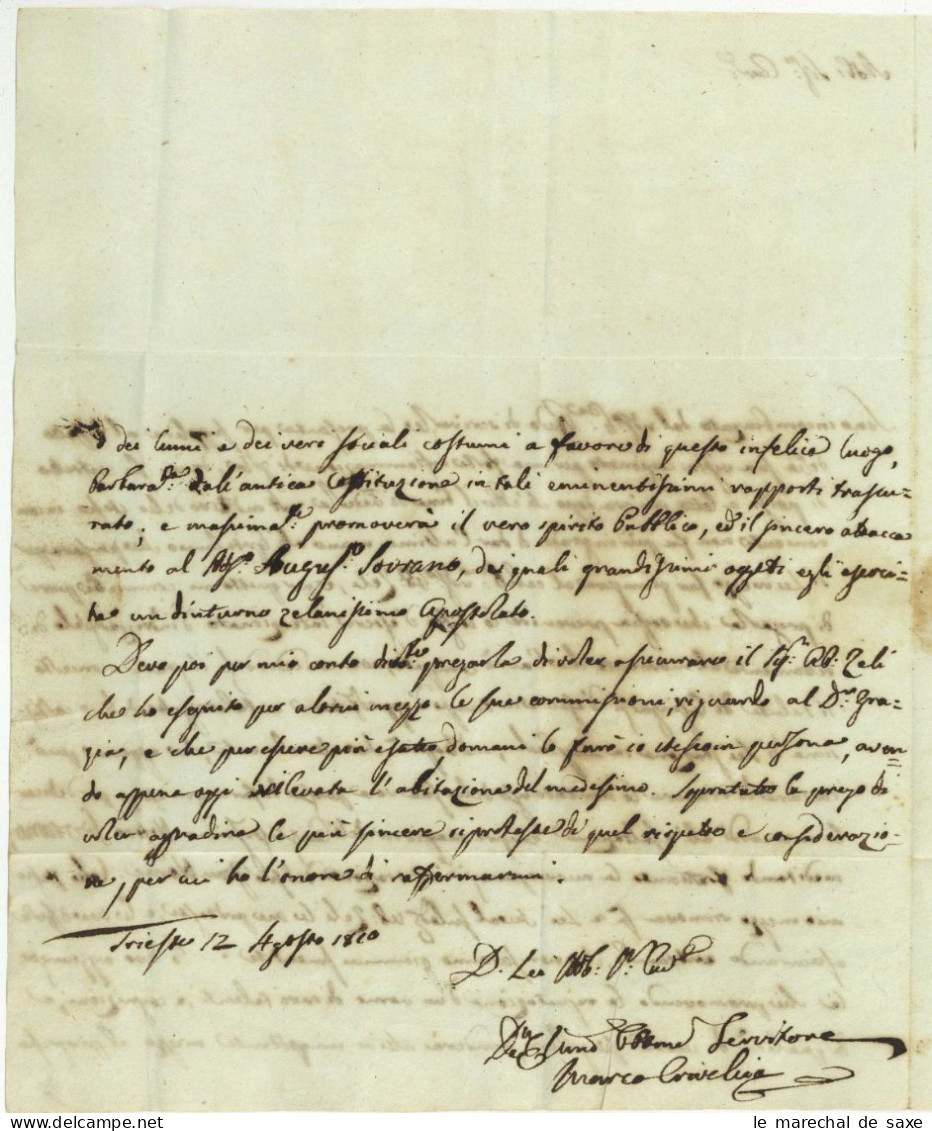 dei lumi e dei veri sociali costumi a favore di questo infelice luogo,
barbara.te dall'antica Costituzione in tali eminentissimi rapporti trascu-
rato; e massima.te promoverà il vero spirito Pubblico, ed il sincero attacca
mento al Augus.mo Sovrano, dei quali grandissimi oggetti egli eserci-
ta un diuturno zelantissimo Apostolato.
Devo poi per mio conto pregarla di voler assicurare il Sig.r Ab. Zeli
che ho eseguito per alcuni mezzo le sue commissioni, riguardo al D.r Gra-
zia, e che per essere più esatto domani lo farò io stesso in persona, aven-
do appena oggi rillevata l'abitazione del medesimo. Sopratutto la prego di
voler aggradire le più sincere riproteste di quel rispetto e considerazio-
ne, per cui ho l'onore di raffermarmi.
Trieste 12 Agosto 1820
D. Lei
Servitore
Marco
le marechal de saxe